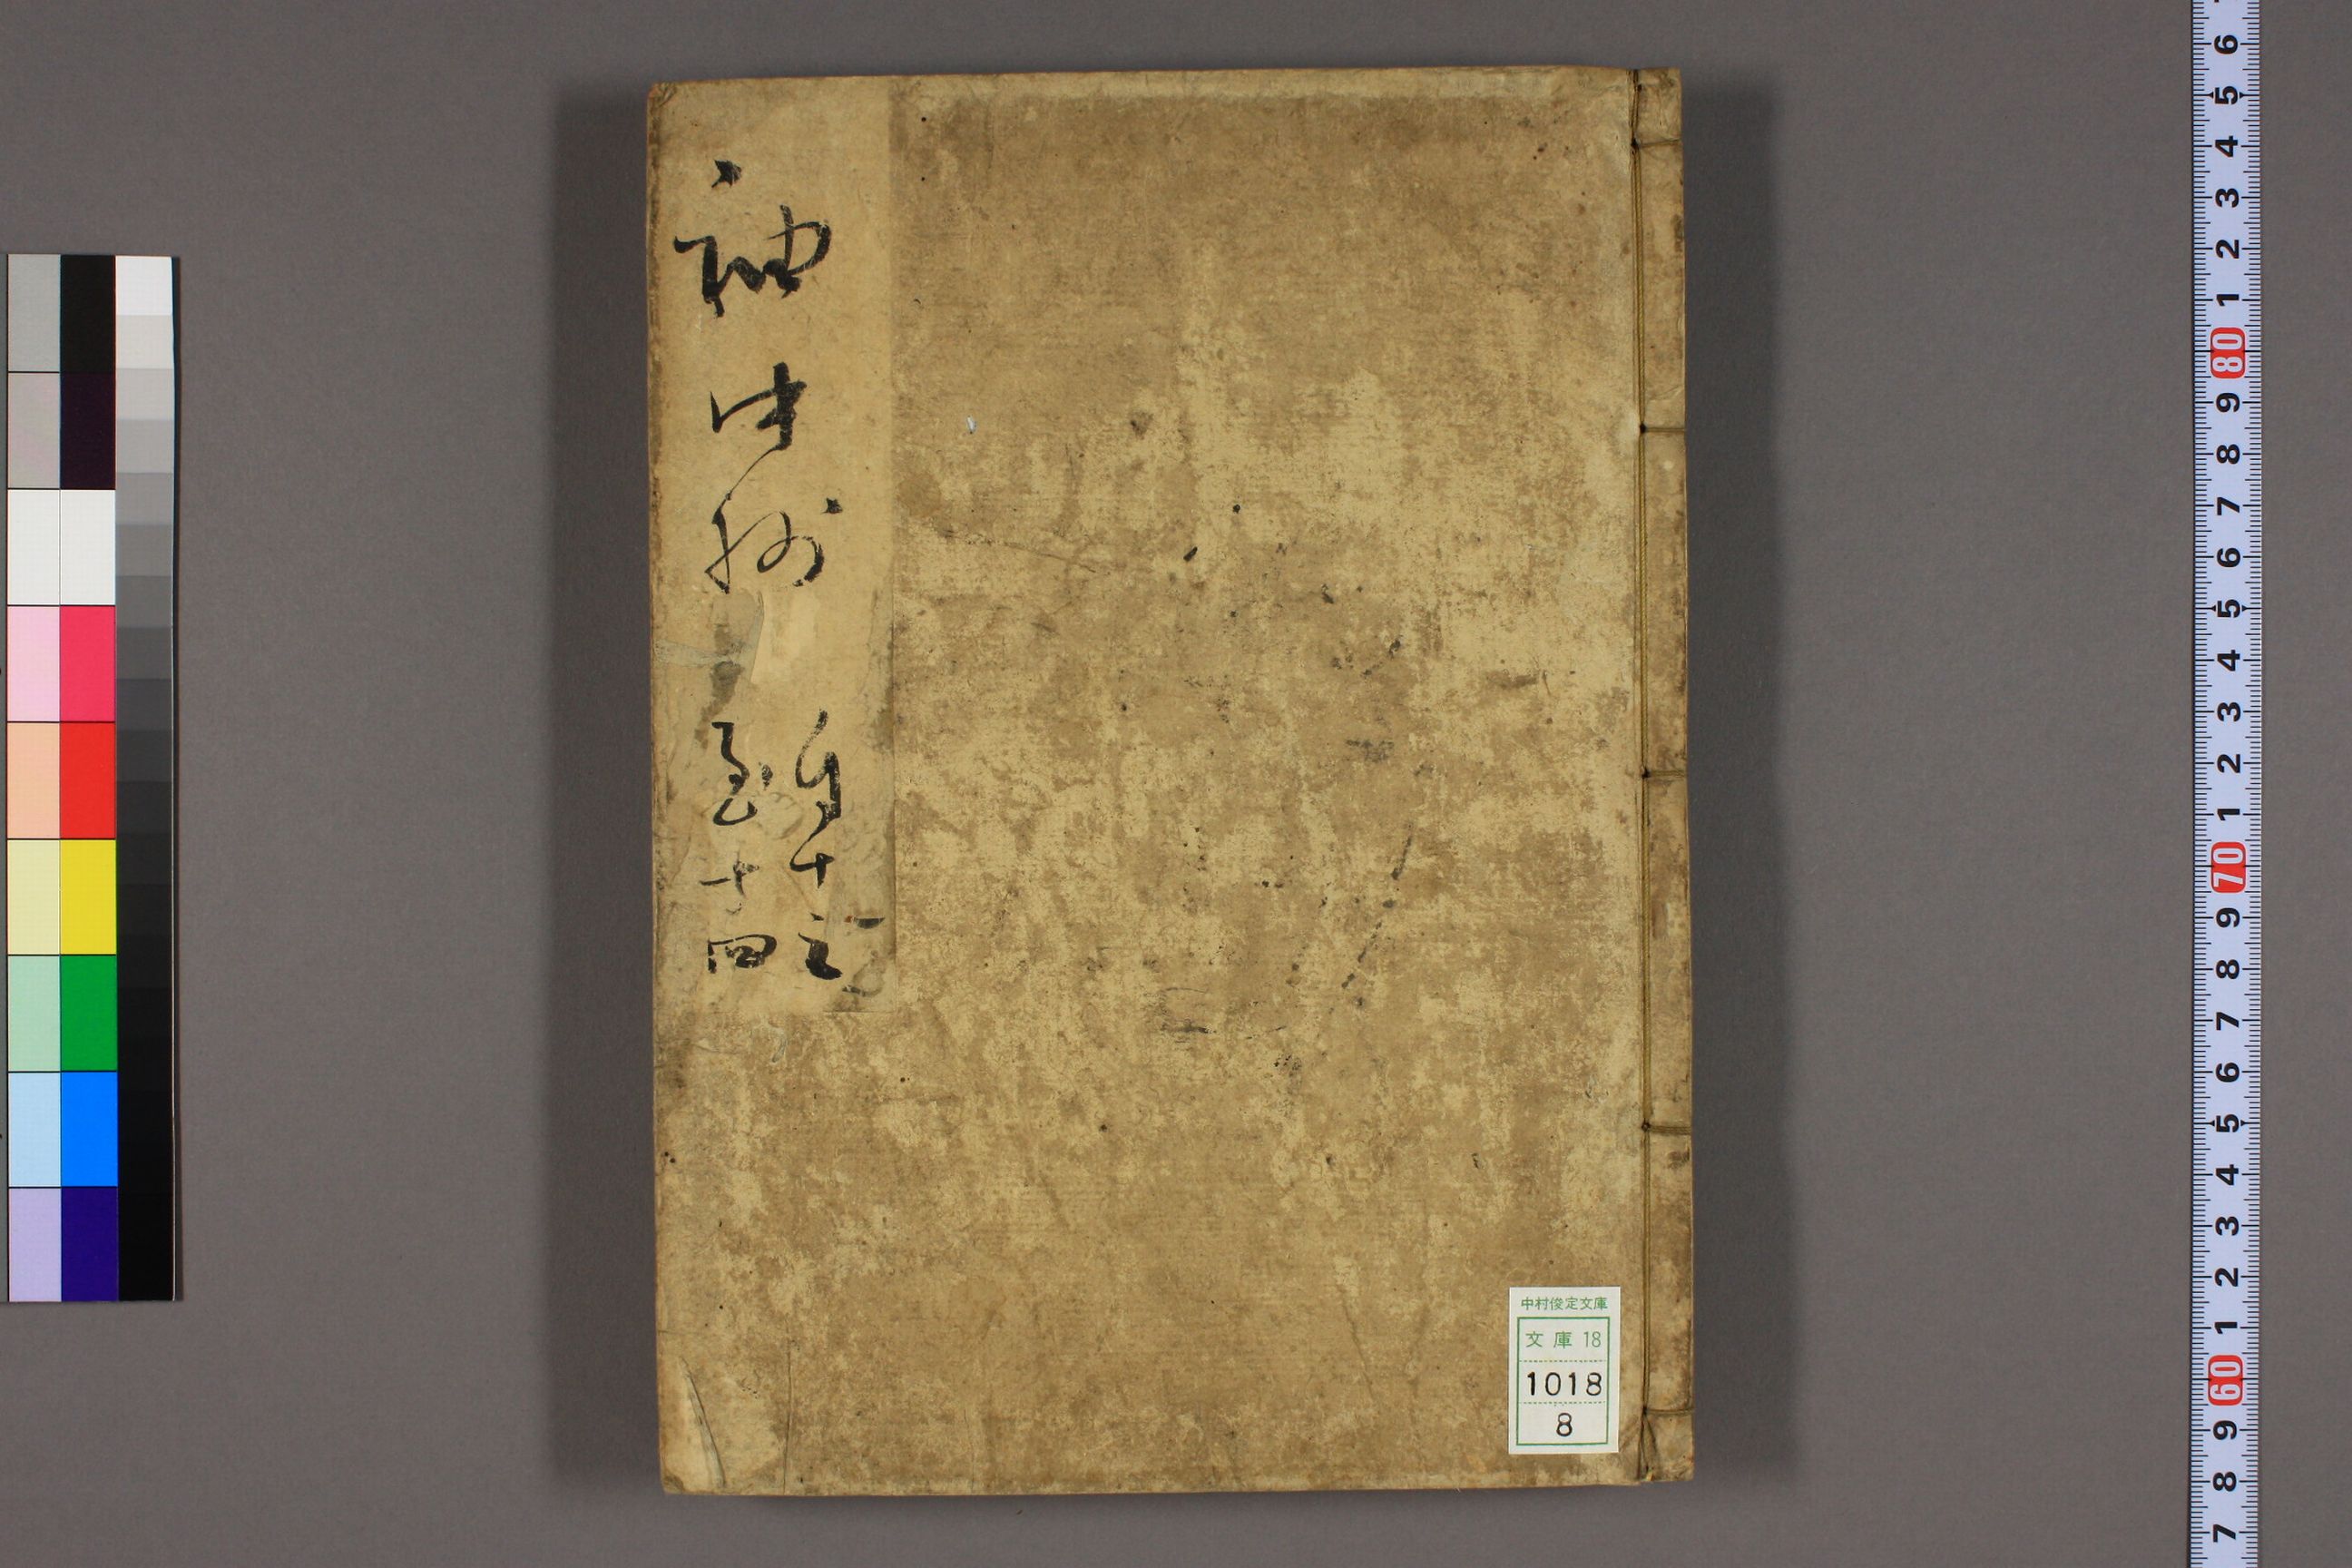 袖中抄
自十三
至十四
中村俊定文庫
文庫 18
1018
8
6 5 4 3 2 1 80 9 8 7 6 5 4 3 2 1 70 9 8 7 6 5 4 3 2 1 60 9 8 7